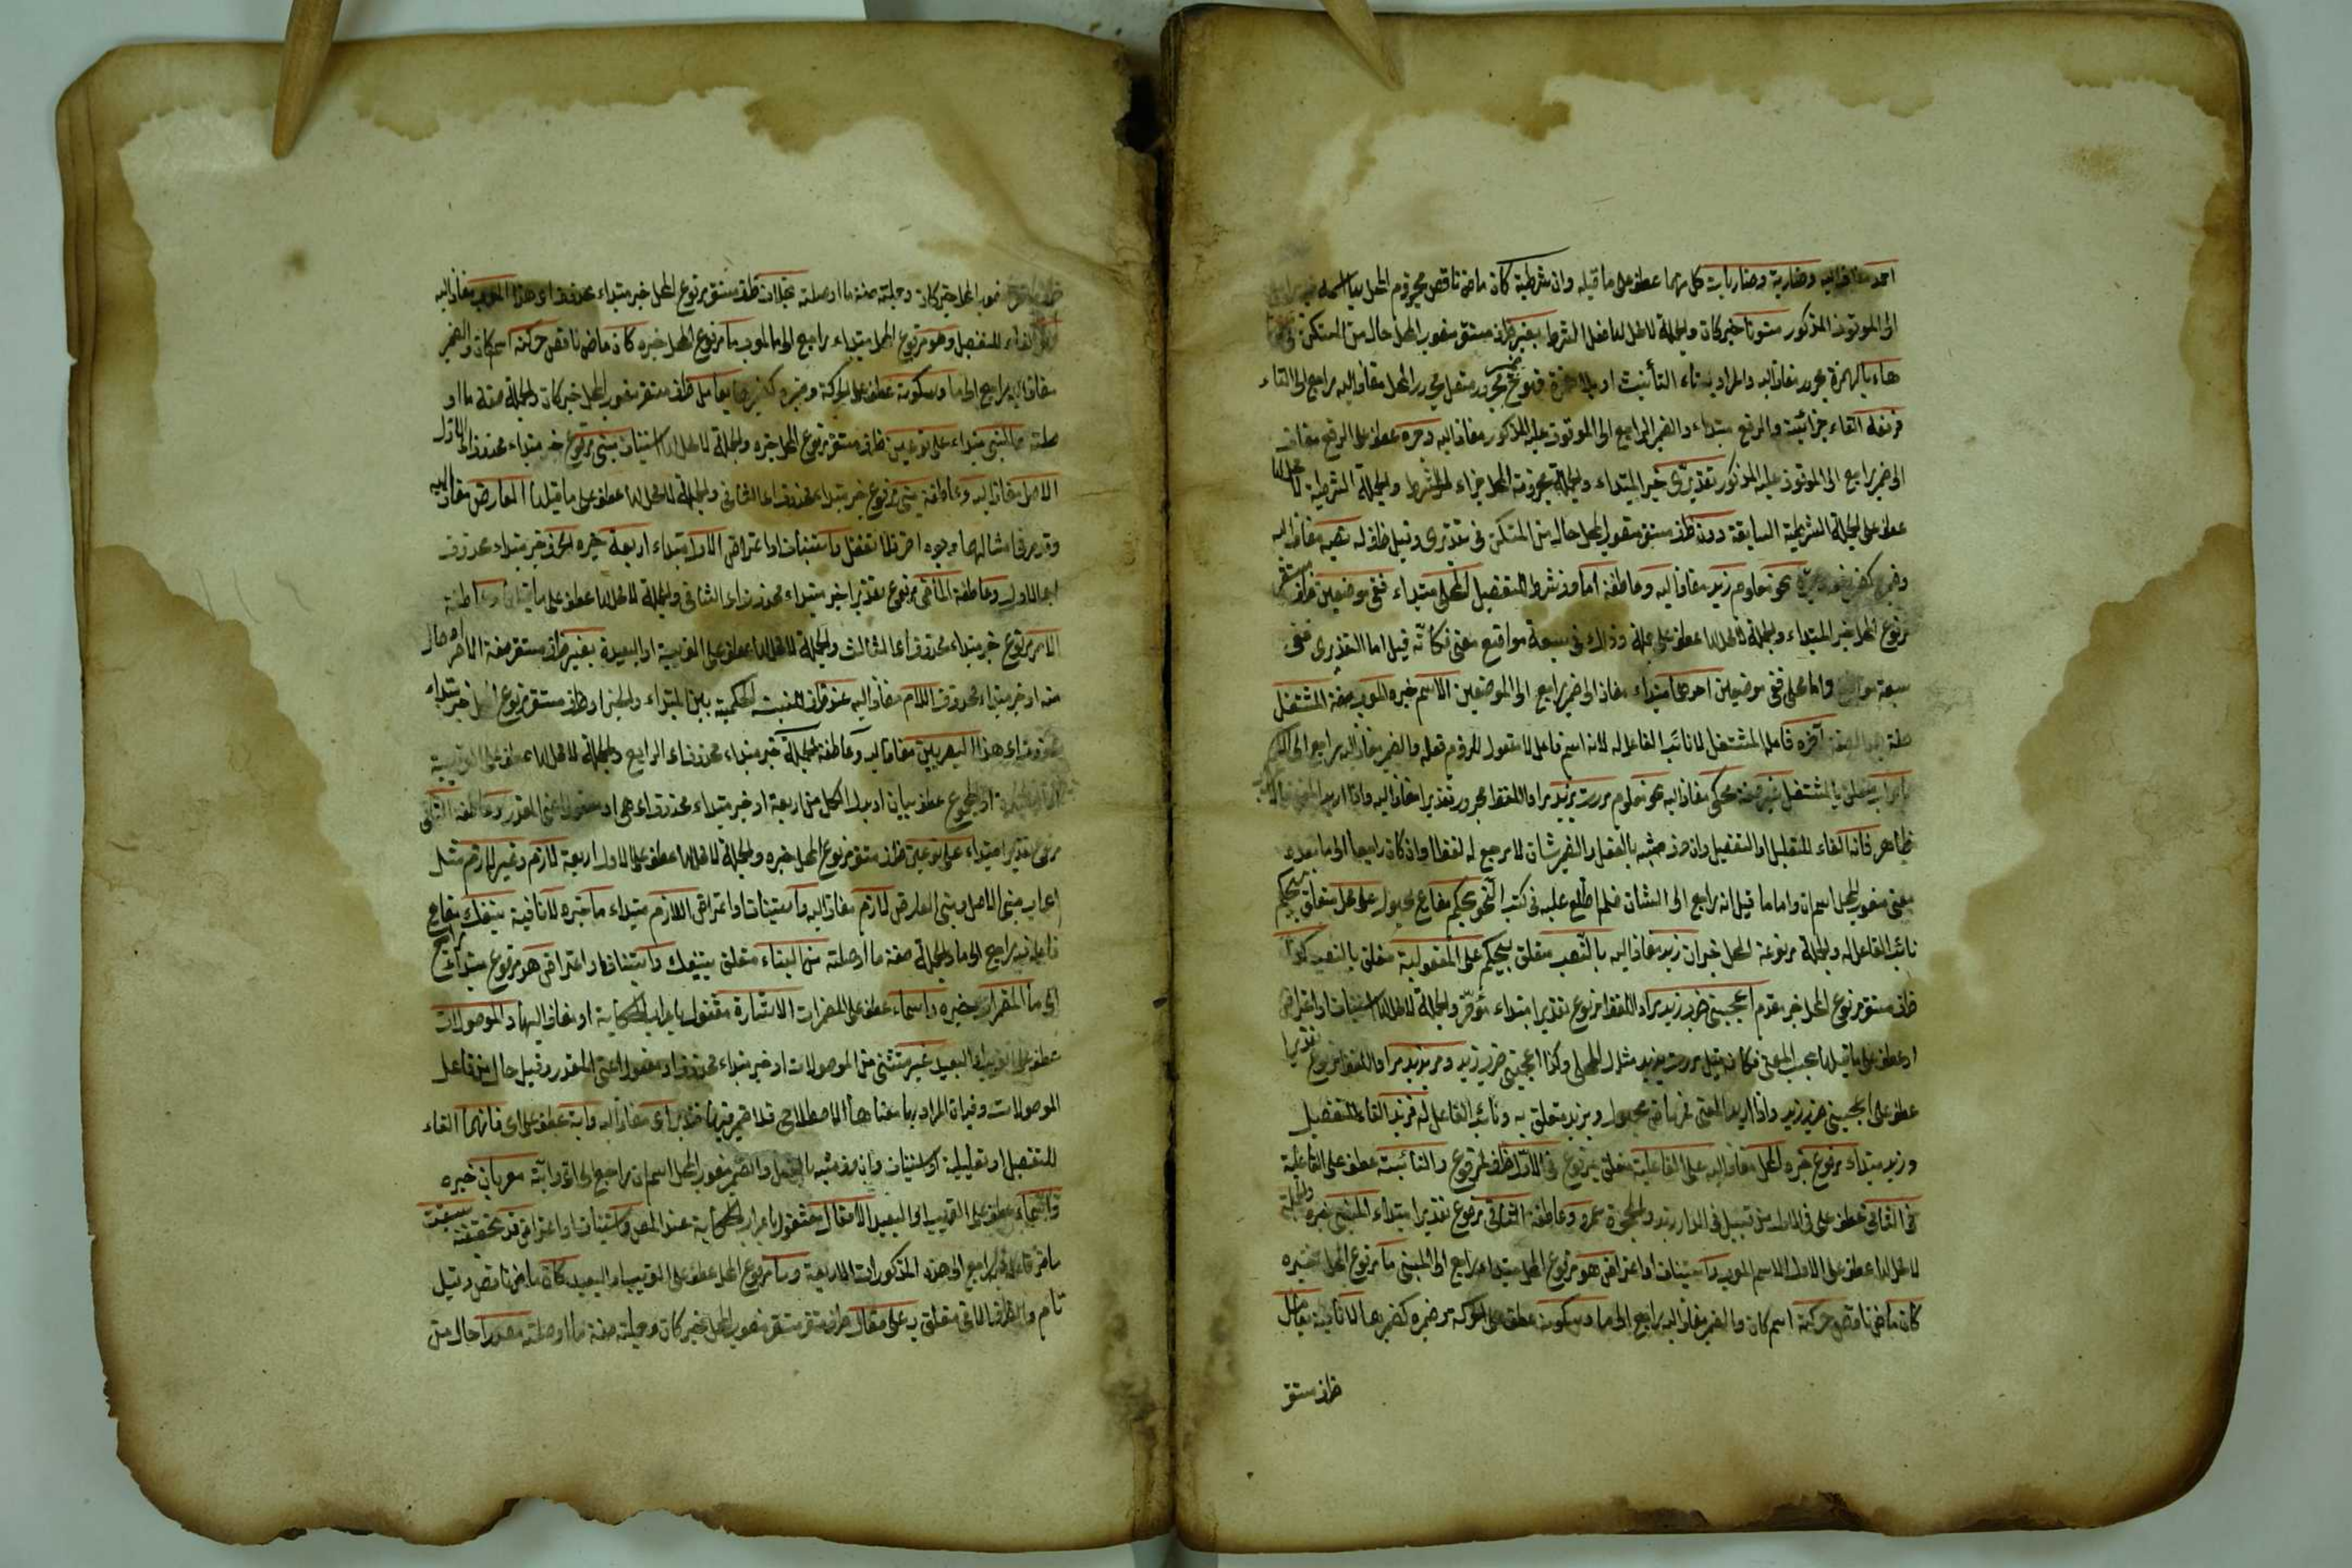 احمد مضاف اليه وضاربة وضاربات كل منهما عطف على ما قبله وان شرطية كان ماض ناقص مجزوم المحل بها اسمه فيه راجع
الى الموقوف المذكور منونا خبر كان والجملة لا محل لها فعل الشرط بغير ظرف مستقر منصوب المحل حال من المستكن في
هاء بالهمزة مجرور مضاف اليه والمراد بتاء التأنيث او بلا همزة مجرور المحل مضاف اليه راجع الى التاء
فرفعه الفاء جزائية والرفع مبتداء والضمير الراجع الى الموقوف عليه المذكور مضاف اليه وجره عطف على الرفع مضاف
الى ضمير راجع الى الموقوف عليه المذكور تقديرى خبر المبتداء والجملة مجزومة المحل جزاء للشرط والجملة الشرطية لا محل لها
عطف على الجملة الشرطية السابقة دون ظرف مستقر منصوب المحل حال من المستكن في تقديرى وقيل ظرف له نصبه مضاف اليه
نحو غلام زيد مضاف اليه وعاطفة اما حرف شرط للتفصيل المحلى مبتداء ففى موضعين ظرف مستقر
مرفوع المحل خبر المبتداء والجملة لا محل لها عطف على جملة وذلك في سبعة مواضع معنى فكأنه قيل اما التقديرى ففى
سبعة مواضع واما المحلى ففى موضعين احدهما مبتداء مضاف الى ضمير راجع الى الموضعين الاسم خبره المعرب صفة المشتغل
صفة بعد الصفة آخره فاعل المشتغل لا نائب الفاعل له لانه اسم فاعل لا مفعول للزوم فعله والضمير مضاف اليه راجع الى الاسم
باعراب متعلق بالمشتغل غير صفة محكى مضاف اليه نحو معلوم مررت بزيد مراد اللفظ مجرور تقديرا مضاف اليه واذا اريد المعنى
ظاهر فانه الفاء للتعليل او التفصيل وان حرف مشبه بالفعل والضمير شان لا مرجع له لفظا وان كان راجعا الى ما بعده
معنى منصوب المحل اسم ان واما ما قيل انه راجع الى الشان فلم اطلع عليه في كتب النحو يحكم مضارع مجهول على محل متعلق بيحكم
نائب الفاعل له والجملة مرفوعة المحل خبر ان زيد مضاف اليه بالنصب متعلق بيحكم على المفعولية متعلق بالنصب كذا
ظرف مستقر مرفوع المحل خبر مقدم اعجبنى ضرب زيد مراد اللفظ مرفوع تقديرا مبتداء مؤخر والجملة لا محل لها استيناف او اعتراض
او عطف على ما قبلها بحسب المعنى فكانه قيل مررت بزيد مثال المحلى وكذا اعجبنى ضرب زيد ومر بزيد مراد اللفظ مرفوع تقديرا
عطف على اعجبنى ضرب زيد واذا اريد المعنى فمر ماض مجهول وبزيد متعلق به ونائب الفاعل له فزيد الفاء للتفصيل
وزيد مبتداء مرفوع خبره المحل مضاف اليه على الفاعلية متعلق بمرفوع في الاول ظرف لمرفوع والنائبية عطف على الفاعلية
في الثانى عطف على في الاول من قبيل في الدار زيد والحجرة عمرو وعاطفة الثانى مرفوع تقديرا مبتداء المبنى خبره والجملة
لا محل لها عطف على الاول الاسم المعرب واستيناف او اعتراض هو مرفوع المحل مبتداء راجع الى المبنى ما مرفوع المحل خبره
كان ماض ناقص حركته اسم كان والضمير مضاف اليه راجع الى ما وسكونه عطف على الحركة وضميره كضميرها لا نافية بعامل
ظرف مستقر
منصوب المحل خبر كان وجملته صفة ما او صلته بخلاف ظرف مستقر مرفوع المحل خبر مبتداء محذوف اى هذا المعرب مضاف اليه
الفاء للتفصيل وهو مرفوع المحل مبتداء راجع الى المعرب ما مرفوع المحل خبره كان ماض ناقص حركته اسم كان والضمير
مضاف اليه راجع الى ما وسكونه عطف على الحركة وضميره كضميرها بعامل ظرف مستقر منصوب المحل خبر كان والجملة صفة ما او
صلته والمبنى مبتداء على نوعين ظرف مستقر مرفوع المحل خبره والجملة لا محل لها استيناف مبنى مرفوع خبر مبتداء محذوف اى الاول
الاصل مضاف اليه وعاطفة مبنى مرفوع خبر مبتداء محذوف اى الثانى والجملة لا محل لها عطف على ما قبلها العارض مضاف اليه
وقد مر في امثالهما وجوه اخر فلا تغفل واستيناف او اعتراض الاول مبتداء اربعة خبره الحرف خبر مبتداء محذوف
اى الاول وعاطفة الماضى مرفوع تقديرا خبر مبتداء محذوف اى الثانى والجملة لا محل لها عطف على ما قبلها وعاطفة
الامر مرفوع خبر مبتداء محذوف اى الثالث والجملة لا محل لها عطف على القريبة او البعيدة بغير ظرف مستقر صفة الامر او حال
منه او خبر مبتداء محذوف اللام مضاف اليه عند ظرف للنسبة الحكمية بين المبتداء والخبر او ظرف مستقر مرفوع المحل خبر مبتداء
محذوف اى هذا البصريين مضاف اليه وعاطفة الجملة خبر مبتداء محذوف اى الرابع والجملة لا محل لها عطف على القريبة
او المجموع عطف بيان او بدل الكل من اربعة او خبر مبتداء محذوف اى هى او مفعول اعنى المقدر وعاطفة الثانى
مرفوع تقديرا مبتداء على نوعين ظرف مستقر مرفوع المحل خبره والجملة لا محل لها عطف على الاول اربعة لازم وغير لازم مثل
اعراب مبنى الاصل ومبنى العارض لازم مضاف اليه واستيناف او اعتراض اللازم مبتداء ما خبره لا نافية ينفك مضارع
فاعله فيه راجع الى ما والجملة صفة ما او صلته عن البناء متعلق بينفك واستيناف او اعتراض هو مرفوع مبتداء راجع
الى ما المضمرات خبره واسماء عطف على المضمرات الاشارة مشغول باعراب الحكاية او مضاف اليها والموصولات
عطف على القريب او البعيد غير مستثنى من الموصولات او خبر مبتداء محذوف او مفعول اعنى المقدر وقيل حال من فاعل
الموصولات وفيه ان المراد بها معناها الاصطلاحى فلا ضمير فيها اى مضاف اليه واية عطف على اى فانهما الفاء
للتفصيل او تعليلية او استيناف وان حرف مشبه بالفعل والضمير منصوب المحل اسم ان راجع الى اى واية معربان خبره
واسماء عطف على القريب او البعيد الافعال مشغول باعراب الحكاية عند المص واستيناف او اعتراض قد تحقيقية سبقت
ماض فاعله فيه راجع الى هذه المذكورات الاربعة وما مرفوع المحل عطف على القريب او البعيد كان ماض ناقص وقيل
تام والظرف الاتى متعلق به على مثال ظرف مستقر منصوب المحل خبر كان وجملته صفة ما او صلته مصدرا حال من